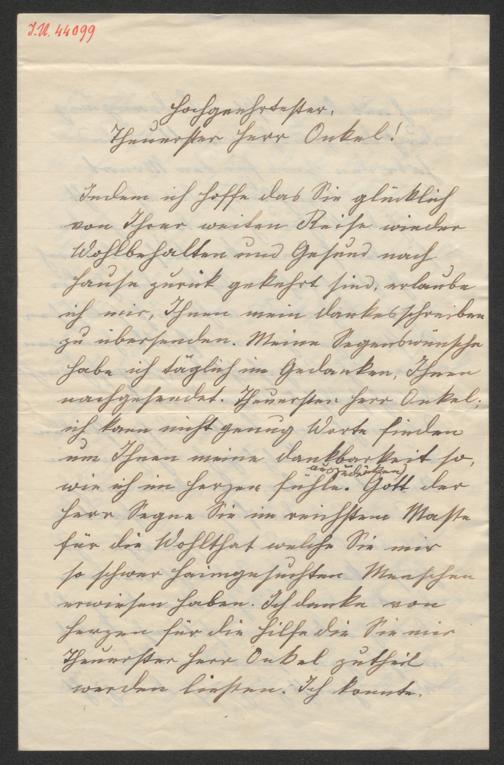 I.N. 44099
Hochgeehrtester,
Theuerster Herr Onkel!
Indem ich hoffe das Sie glücklich
von Ihrer weiten Reise wieder
Wohlbehalten und Gesund nach
Hause zurük gekehrt sind, erlaube
ich mir, Ihnen mein dankesschreiben
zu übersenden. Meine Segenswünsche
habe ich täglich im Gedanken, Ihnen
nachgesendet. Theuerster Herr Onkel,
ich kann nicht genug Worte finden
um Ihnen meine dankbarkeit so,
auszudrüken
wie ich im herzen fühle. Gott der
Herr Segne Sie im reichstem Maße
für die Wohlthat welche Sie mir
so schwer haimgesuchten Menschen
erwiesen haben. Ich danke von
herzen für die hilfe die Sie mir
Theuerster Herr Onkel zutheil
werden ließen. Ich konnte,